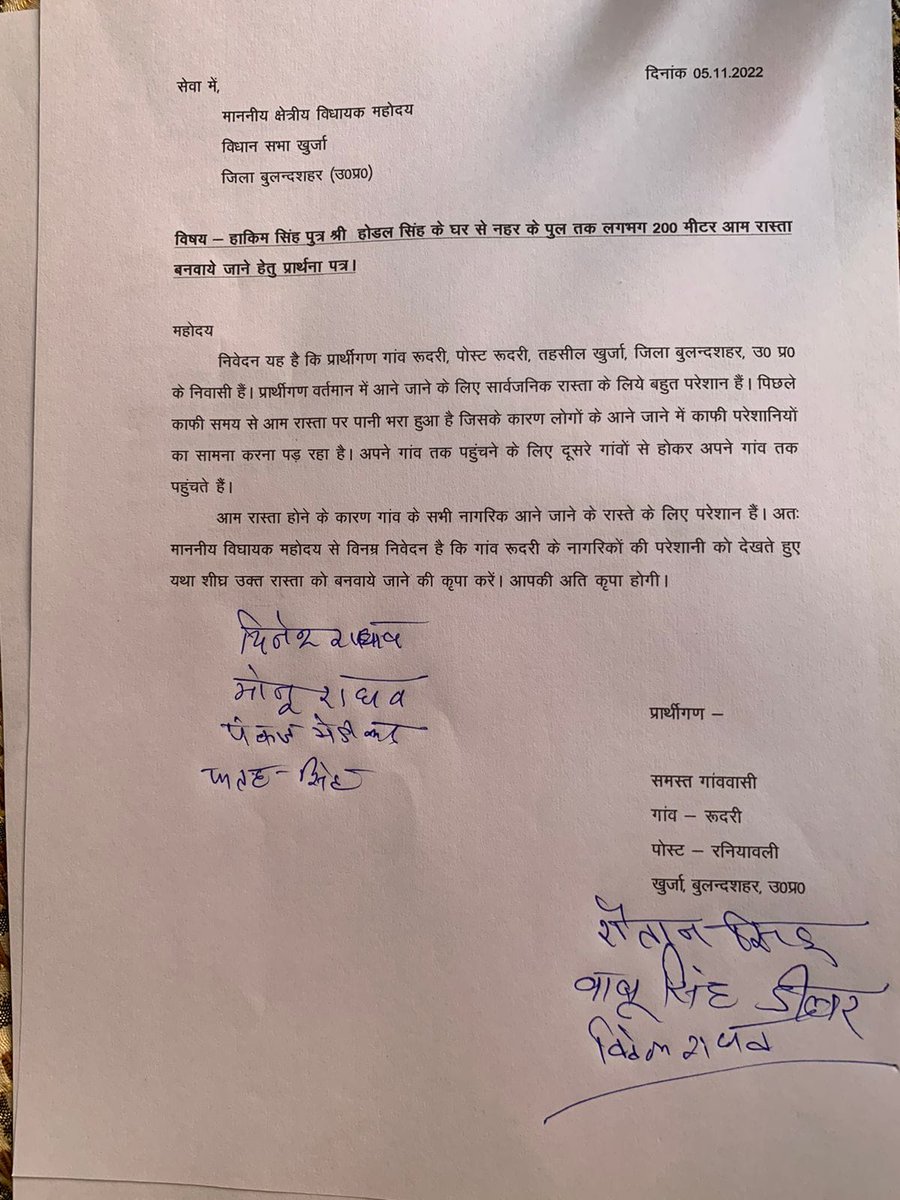 दिनांक 05.11.2022
सेवा में,
माननीय क्षेत्रीय विधायक महोदय
विधान सभा खुर्जा
जिला बुलन्दशहर (उ0प्र0)
विषय – हाकिम सिंह पुत्र श्री होडल सिंह के घर से नहर के पुल तक लगभग 200 मीटर आम रास्ता
बनवाये जाने हेतु प्रार्थना पत्र।
महोदय
निवेदन यह है कि प्रार्थीगण गांव रूदरी, पोस्ट रूदरी, तहसील खुर्जा, जिला बुलन्दशहर, उ0 प्र0
के निवासी हैं। प्रार्थीगण वर्तमान में आने जाने के लिए सार्वजनिक रास्ता के लिये बहुत परेशान हैं। पिछले
काफी समय से आम रास्ता पर पानी भरा हुआ है जिसके कारण लोगों के आने जाने में काफी परेशानियों
का सामना करना पड़ रहा है। अपने गांव तक पहुंचने के लिए दूसरे गांवों से होकर अपने गांव तक
पहुंचते हैं।
आम रास्ता होने के कारण गांव के सभी नागरिक आने जाने के रास्ते के लिए परेशान हैं। अतः
माननीय विघायक महोदय से विनम्र निवेदन है कि गांव रूदरी के नागरिकों की परेशानी को देखते हुए
यथा शीघ्र उक्त रास्ता को बनवाये जाने की कृपा करें। आपकी अति कृपा होगी।
राघव
मोनू राघव
पंकज
सिंह
प्रार्थीगण –
समस्त गांववासी
गांव – रूदरी
पोस्ट – रनियावली
खुर्जा, बुलन्दशहर, उ0प्र0
शैतान सिंह
बाबू सिंह डीलर
राघव